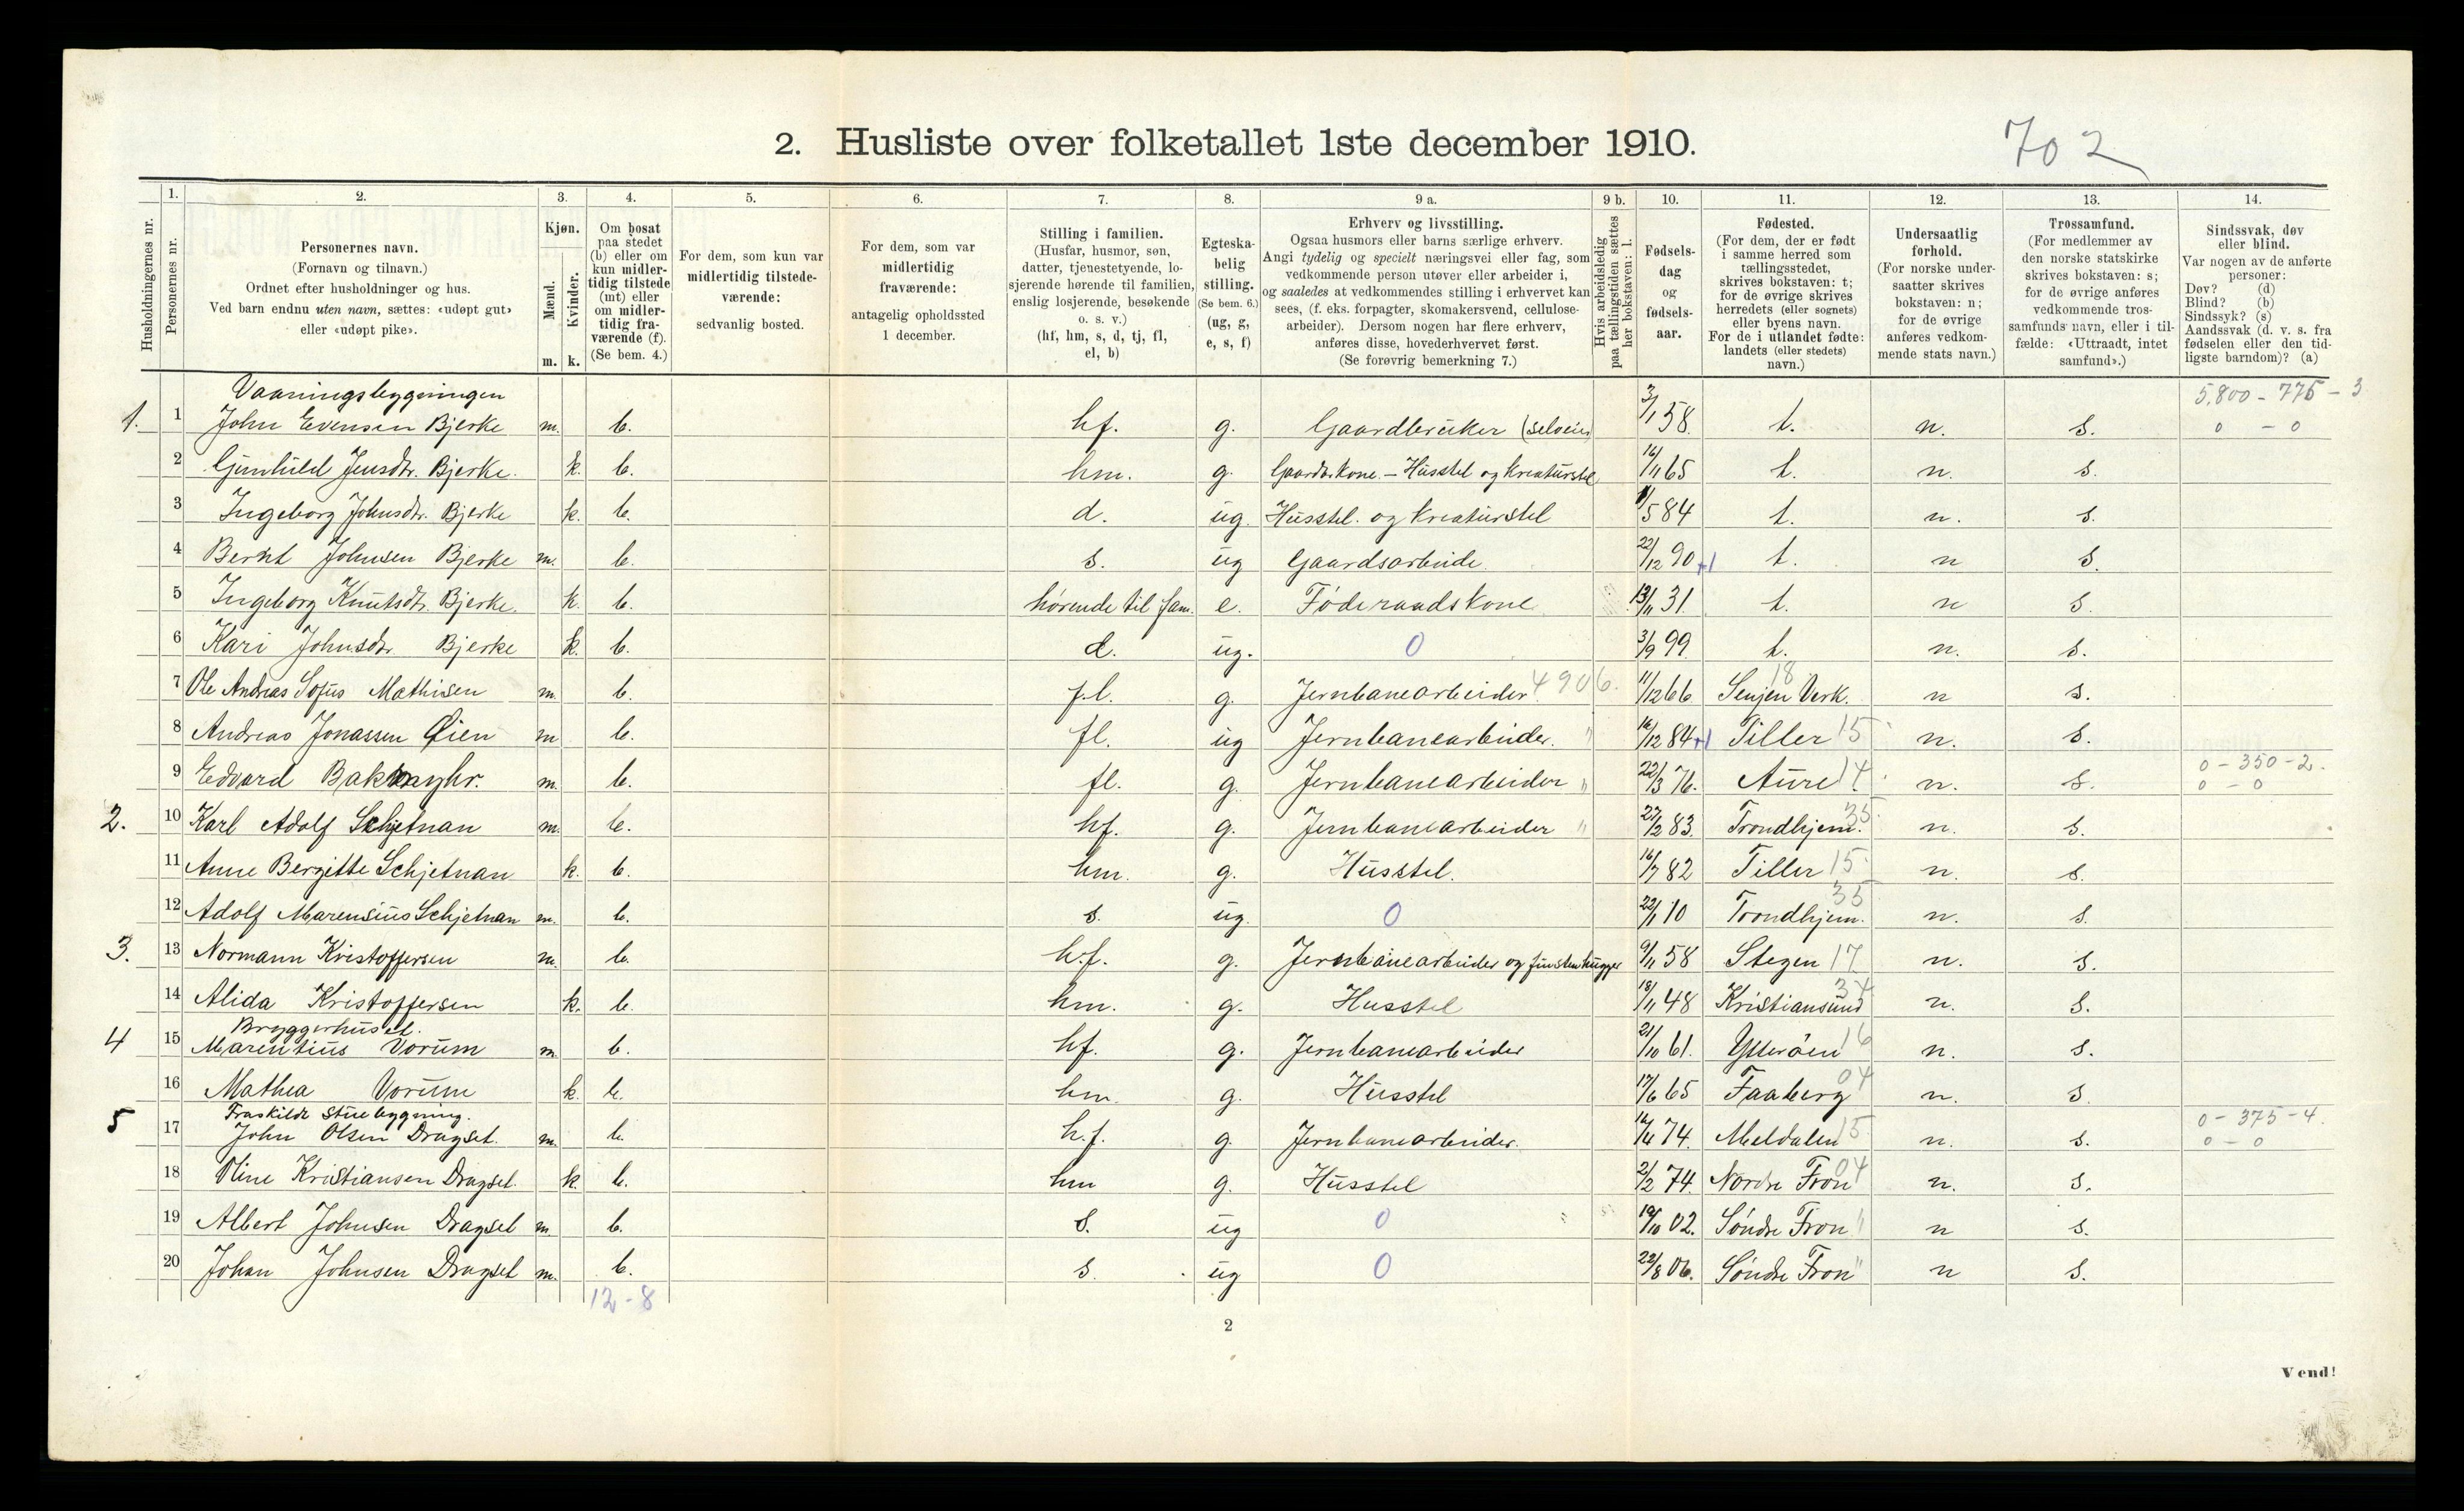 702
2. Husliste over folketallet 1ste december 1910.
Husholdningernes nr.
1. Personernes nr.
2. Personernes navn. (Fornavn og tilnavn.) Ordnet efter husholdninger og hus. Ved barn endnu uten navn, sættes: «udøpt gut» eller «udøpt pike».
3. Kjøn. Mænd. m. Kvinder. k.
4. Om bosat paa stedet (b) eller om kun midlertidig tilstede (mt) eller om midlertidig fraværende (f). (Se bem. 4.)
5. For dem, som kun var midlertidig tilstedeværende: sedvanlig bosted.
6. For dem, som var midlertidig fraværende: antagelig opholdssted 1 december.
7. Stilling i familien. (Husfar, husmor, søn, datter, tjenestetyende, losjerende hørende til familien, enslig losjerende, besøkende o. s. v.) (hf, hm, s, d, tj, fl, el, b)
8. Egteskabelig stilling. (Se bem. 6.) (ug, g, e, s, f)
9 a. Erhverv og livsstilling. Ogsaa husmors eller barns særlige erhverv. Angi tydelig og specielt næringsvei eller fag, som vedkommende person utøver eller arbeider i, og saaledes at vedkommendes stilling i erhvervet kan sees, (f. eks. forpagter, skomakersvend, cellulosearbeider). Dersom nogen har flere erhverv, anføres disse, hovederhvervet først. (Se forøvrig bemerkning 7.)
9 b. Hvis arbeidsledig paa tællingstiden sættes her bokstaven: l.
10. Fødselsdag og fødselsaar.
11. Fødested. (For dem, der er født i samme herred som tællingsstedet, skrives bokstaven: t; for de øvrige skrives herredets (eller sognets) eller byens navn. For de i utlandet fødte: landets (eller stedets) navn.)
12. Undersaatlig forhold. (For norske undersaatter skrives bokstaven: n; for de øvrige anføres vedkommende stats navn.)
13. Trossamfund. (For medlemmer av den norske statskirke skrives bokstaven: s; for de øvrige anføres vedkommende trossamfunds navn, eller i tilfælde: «Uttraadt, intet samfund».)
14. Sindssvak, døv eller blind. Var nogen av de anførte personer: Døv? (d) Blind? (b) Sindssyk? (s) Aandssvak (d. v. s. fra fødselen eller den tidligste barndom)? (a)
Vaaningsbygningen 5,800 - 775 - 3
1. 1 John Evensen Bjerke m. b. hf. g. Gaardbruker (selveier) 3/1 58. t. n. s. 0 - 0
2 Gunhild Jensdtr. Bjerke. k. b. hm. g. Gaardskone - Husstel og kreaturstel 14/11 65 t. n. s.
3 Ingeborg Johnsdtr. Bjerke k. b. d. ug. Husstel og kreaturstel /5 84 t. n. s.
4 Bernt Johnsen Bjerke m. b. s. ug Gaardsarbeide. 22/12 90 t. n s.
5 Ingeborg Knutsdtr. Bjerke. k. b. hørende til fam. e. Føderaadskone 13/11 31. t. n s.
6 Kari Johnsdtr Bjerke k. b. d. ug. 0 3/9 99. t. n. s.
7 Ole Andreas Sofus Mathisen m. b. f.l. g. Jernbanearbeider 4906. 11/12 66. Senjen Verk. 18 n s.
8 Andreas Jonassen Øien m b. fl. ug Jernbanearbeider. " 16/12 84 Tiller 15 n. s.
9 Edvard Bakmyhr. m. b. fl. g. Jernbanearbeider " 22/3 76. Aure 14 n. s. 0 - 350 - 2. 0 - 0
2. 10 Karl Adolf Schjetnan m. b. hf. g. Jernbanearbeider " 27/2 83. Trondhjem. 35 n. s.
11 Anne Bergitte Schjetnan k. b. hm. g. Husstel. 16/7 82 Tiller 15 n. s.
12 Adolf Marensius Schjetnan m. b. s. ug. 0 22/1 10 Trondhjem. 35 n. s.
3. 13 Normann Kristoffersen m. b. h.f. g. Jernbanearbeider og finstenhugger 9/11 58 Stegen 17 n. s.
14 Alida Kristoffersen k. b. hm. g. Husstel 18/11 48 Kristiansund 34 n. s.
Bryggerhuset.
4 15 Marentius Vorum m. b. hf. g. Jernbanearbeider 21/10 61. Ytterøen 16 n. s.
16 Mathea Vorum k. b. hm. g. Husstel 17/6 65 Faaberg 04 n. s
Fraskildt stuebygning. 0 - 375 - 4.
5 17 John Olsen Dragset. m. b. h.f. g. Jernbanearbeider. 74. Meldalen 15 n. s. 0 - 0
18 Oline Kristiansen Dragset. k. b. hm g. Husstel 2/2 74. Nordre Fron 04 n. s.
19 Albert Johnsen Dragset m. b. s. ug 0 19/10 02. Søndre Fron " n s.
20 Johan Johnsen Dragset m. b. s. ug 0 22/8 06. Søndre Fron " n s.
12 - 8
2
Vend!